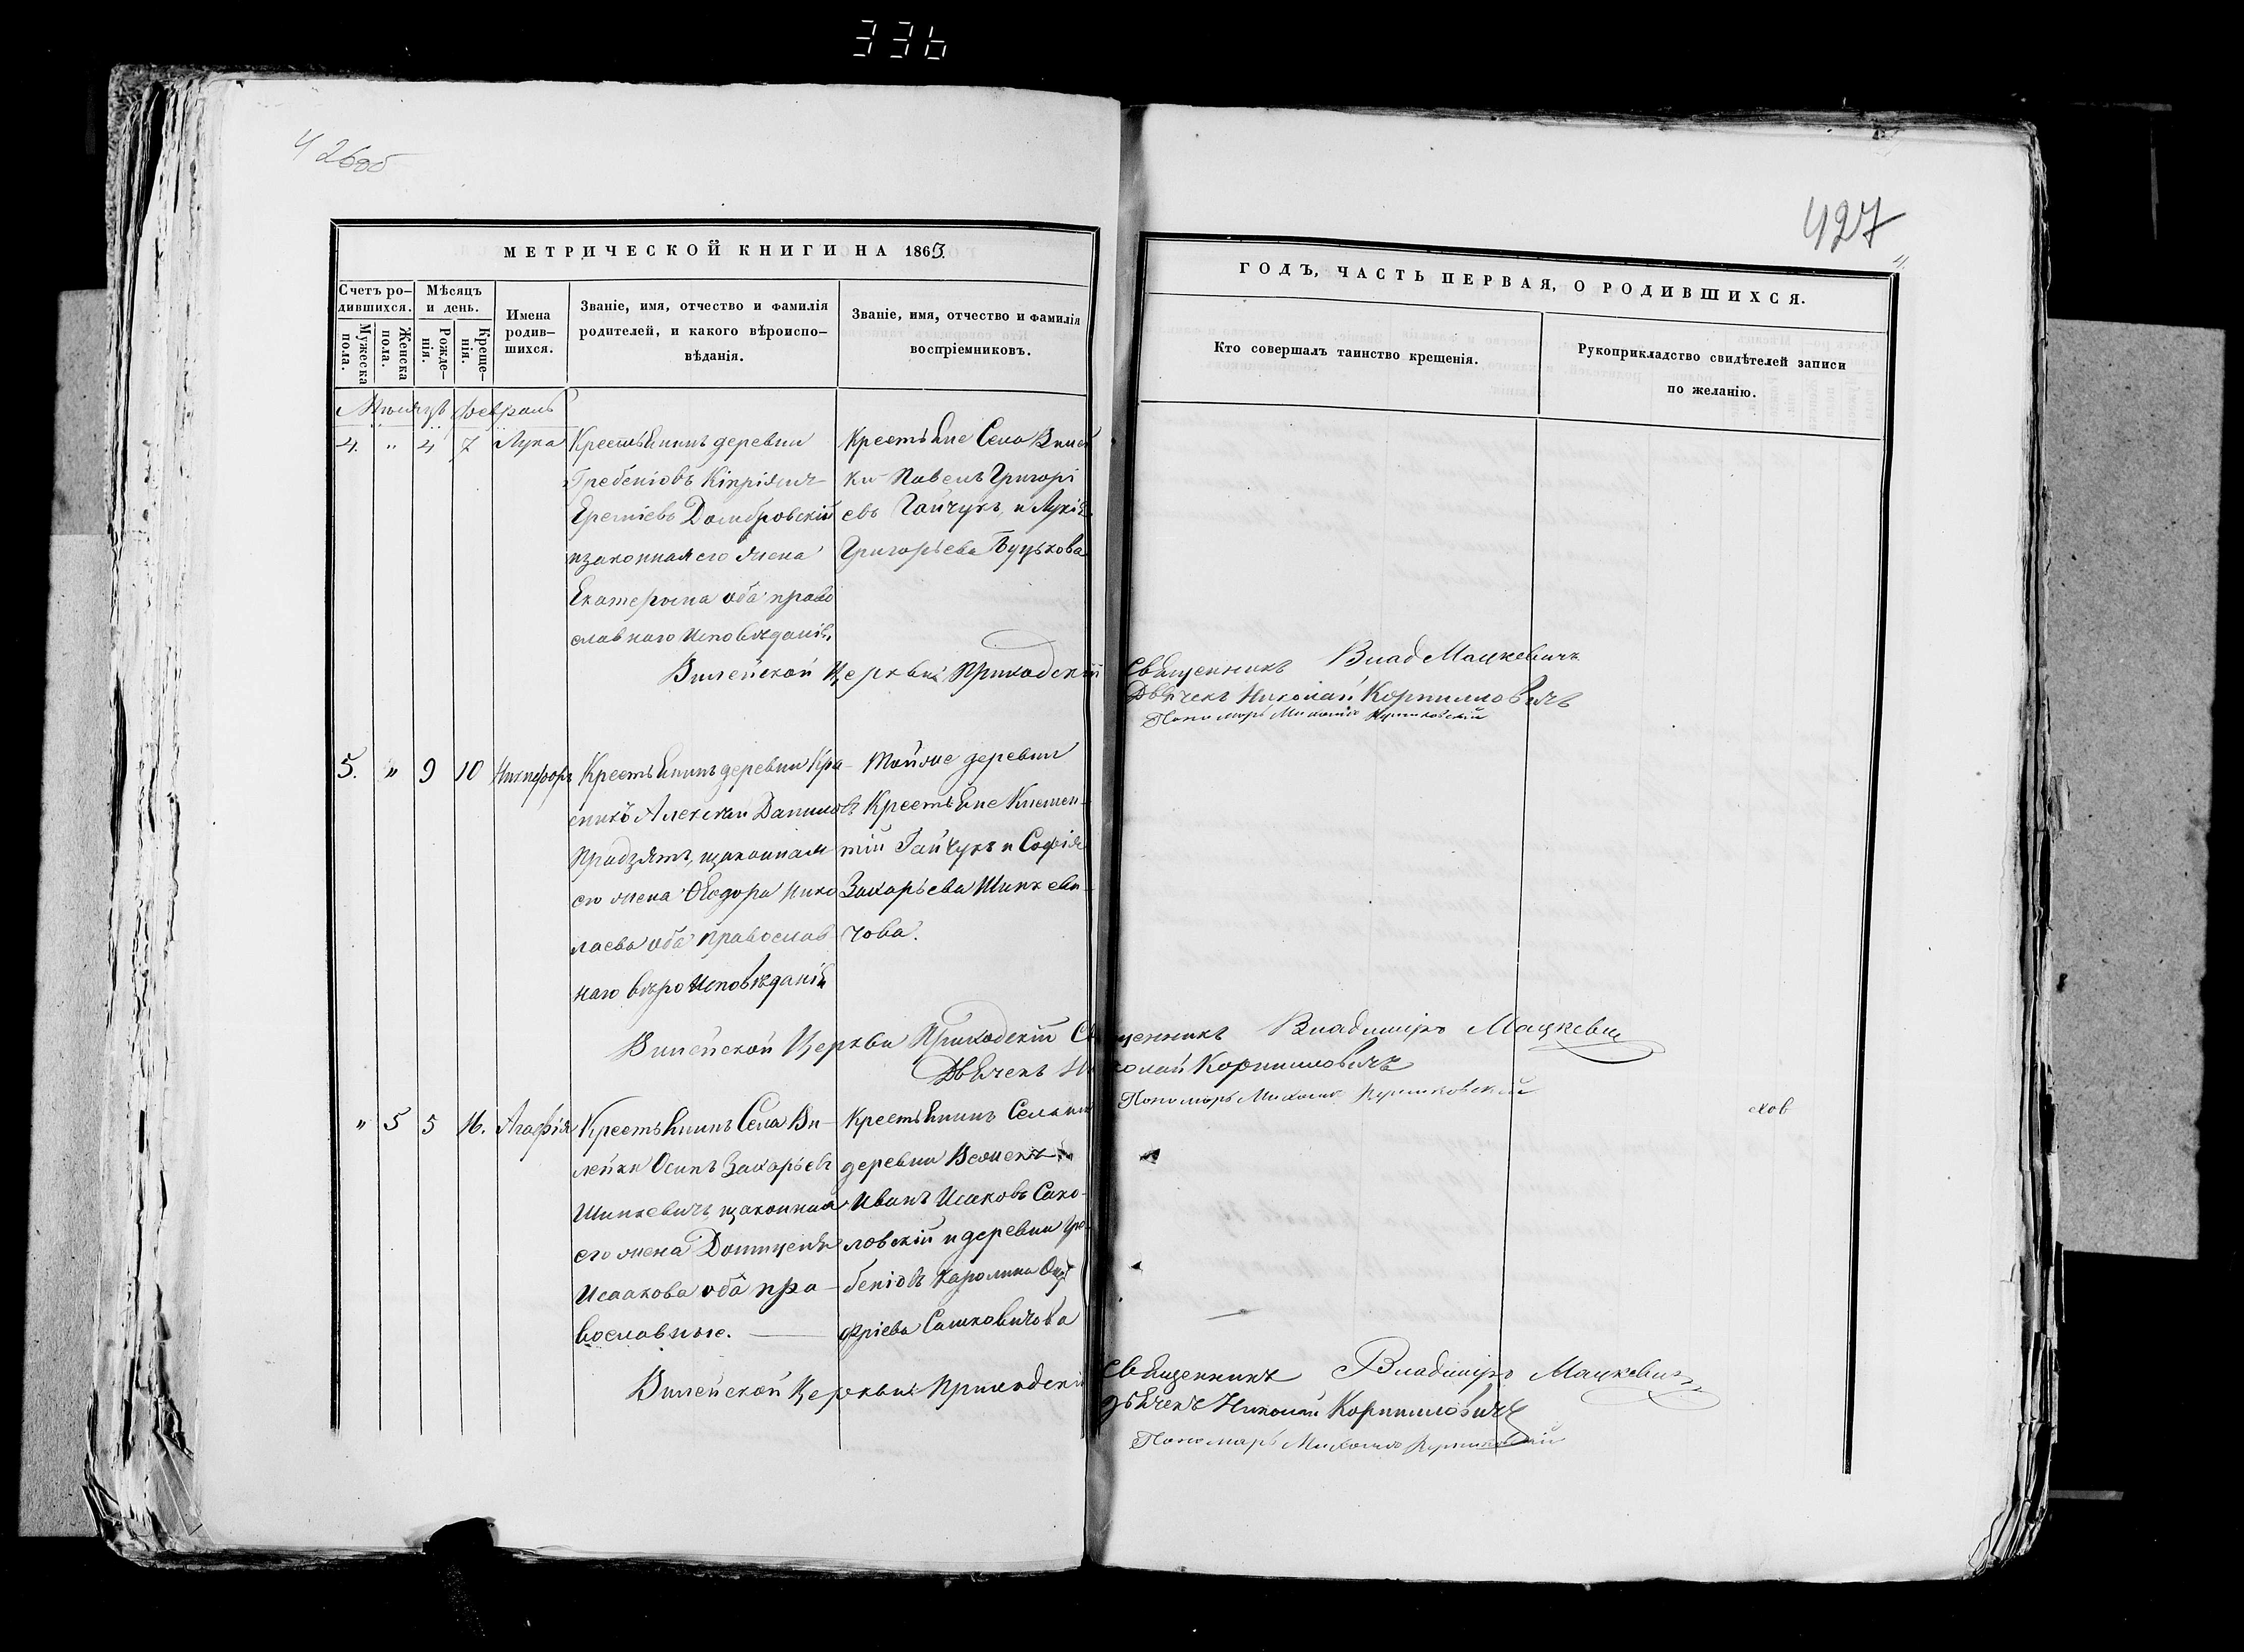 336
426об
427
МЕТРИЧЕСКОЙ КНИГИ НА 1863.
Счетъ ро-
дившихся.
Мужеска
пола.
Женска
пола.
Мѣсяцъ
и день.
Рожде-
нія.
Креще-
нія.
Имена
родив-
шихся.
Званіе, имя, отчество и фамилія
родителей, и какого вѣроиспо-
вѣданія.
Званіе, имя, отчество и фамилія
воспріемниковъ.
ГОДЪ, ЧАСТЬ ПЕРВАЯ, О РОДИВШИХСЯ.
Кто совершалъ таинство крещенія.
Рукоприкладство свидѣтелей записи
по желанію.
Мѣсяцъ Февраль
4. " 4 7 Лука
Крестьянинъ деревни
Гребеніовъ Кипріянъ
Еремѣевъ Домбровскій
изаконная его жена
Екатерына оба право
славнаго исповѣданія,
Крестьяне Села Вилей
ки Павелъ Григорі
евъ Гайчукъ, и Лукія
Григорьева Буцькова
Вилейской Церкви Приходскій Священникъ Влад Мацкевичъ
Дьячекъ Николай Корниловичъ
Пономарь Михаилъ
5. " 9 10 Никифоръ
Крестьянинъ деревни Кра-
сники Алексѣй Даниловъ
Прадзятъ, изаконная
его жена Ѳеодора Нико
лаева оба православ
наго вѣроисповѣданія
Тойже деревни
Крестьяне Климен-
тій Гайчукъ и Софія
Захарьева Шинкеви-
чова.
Вилейской Церкви Приходскій Священникъ Владиміръ Мацкевич
Дьячекъ Николай Корниловичъ
Пономарь Михаилъ
" 5 5 16. Агафія
Крестьянинъ Села Ви-
лейки Осипъ Захарьевъ
Шинкевичъ, изаконная
его жена Домицеля
Исаакова оба пра-
вославные.
Крестьянинъ
деревни
Иванъ Исаковъ Сако-
ловскій и деревни Гре-
беніовъ Каролина Ону
фріева Сашковичова
сков
Вилейской Церкви Приходскій Священникъ Владиміръ Мацкевич
Дьячекъ Николай Корниловичъ
Пономарь Михаилъ